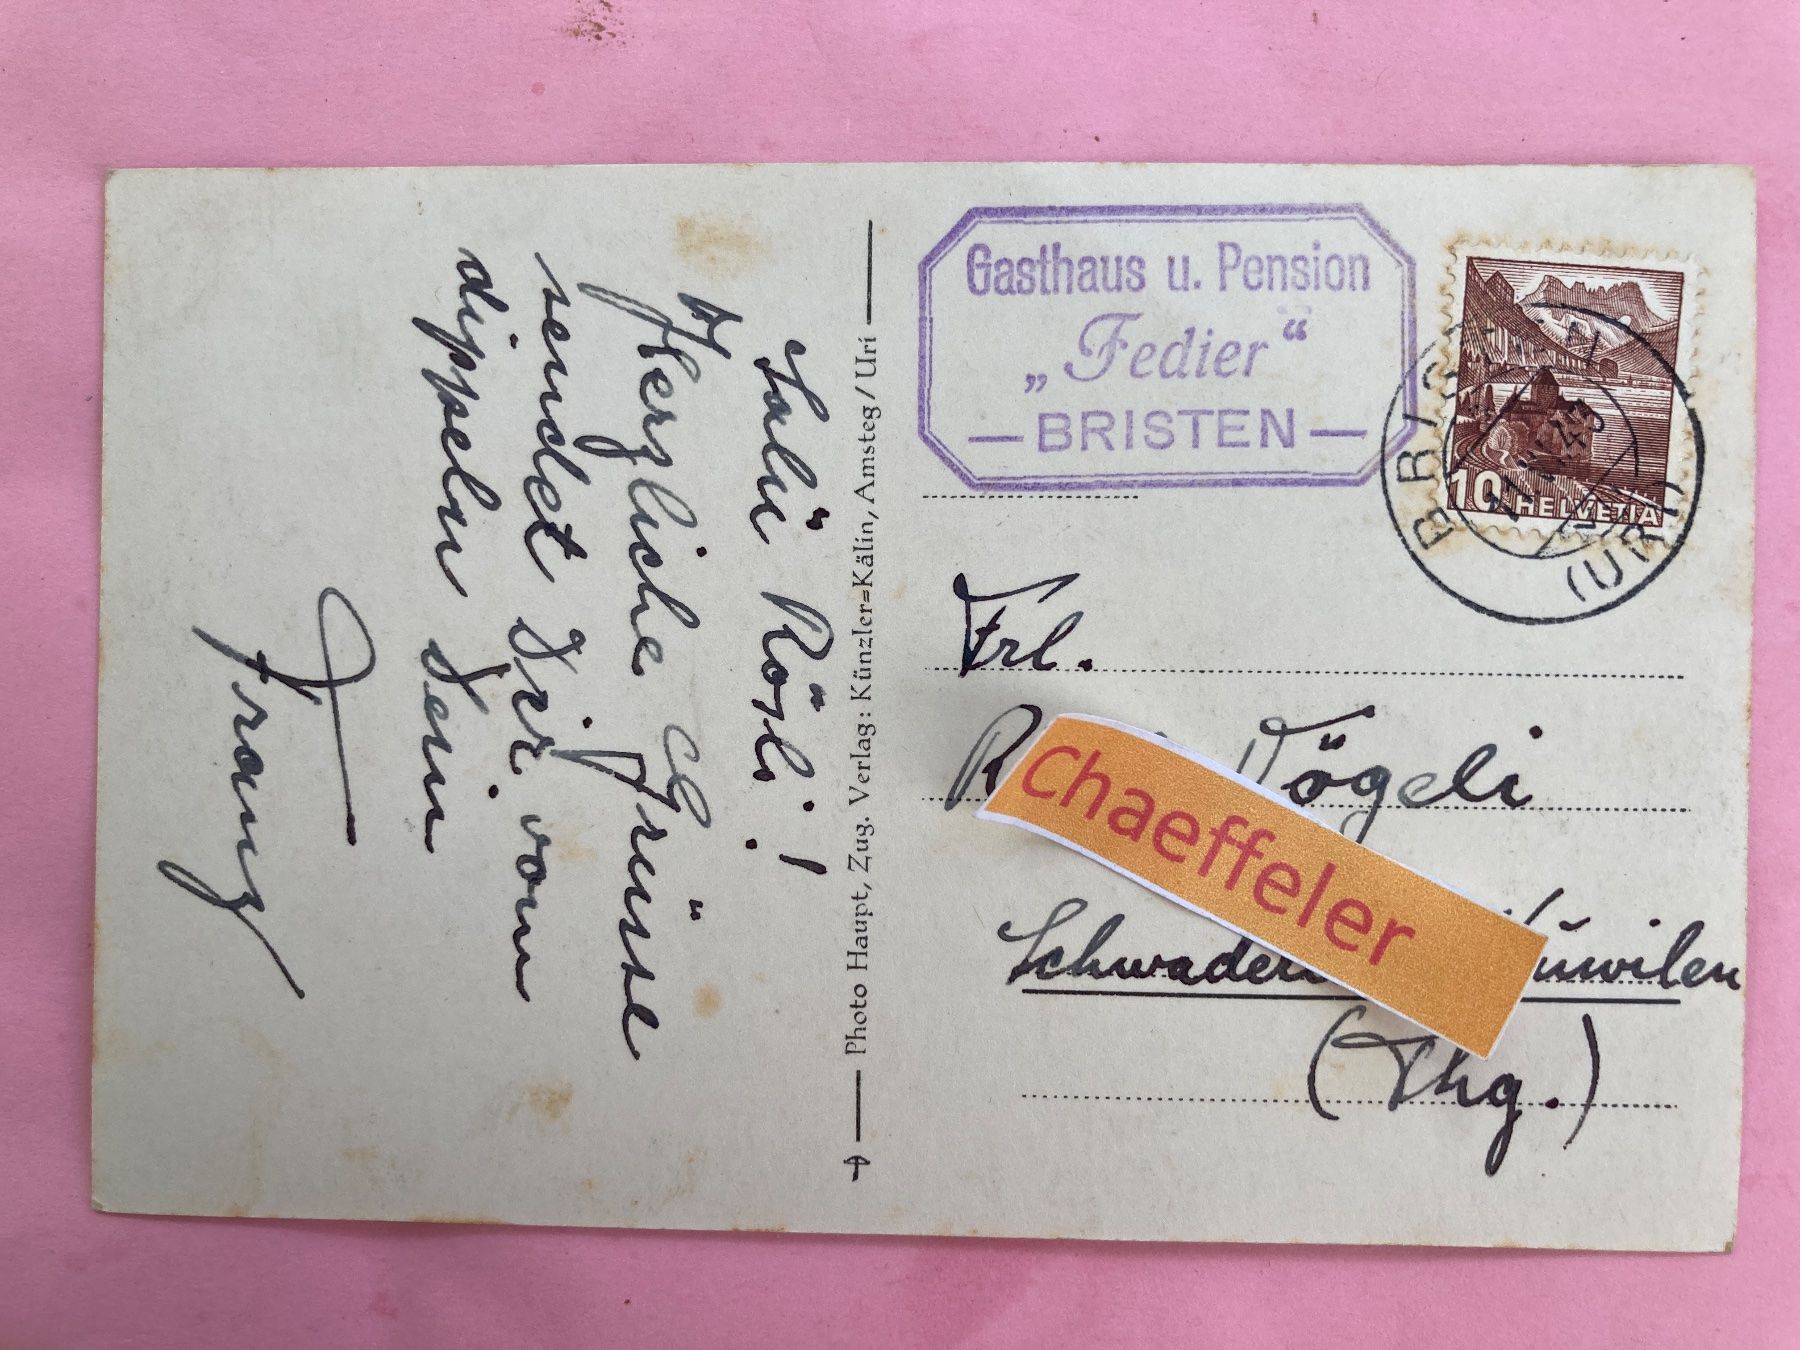 Salü Rösli!
Herzliche Grüsse
sendet Dir vom
dippeln Dein
Franz
Photo Haupt, Zug. Verlag: Künzler=Kälin, Amsteg/Uri
Gasthaus u. Pension
„Fedier“
— BRISTEN —
BRISTEN
(URI)
10 HELVETIA
Frl.
Vögeli
Chaeffeler
(Thg.)